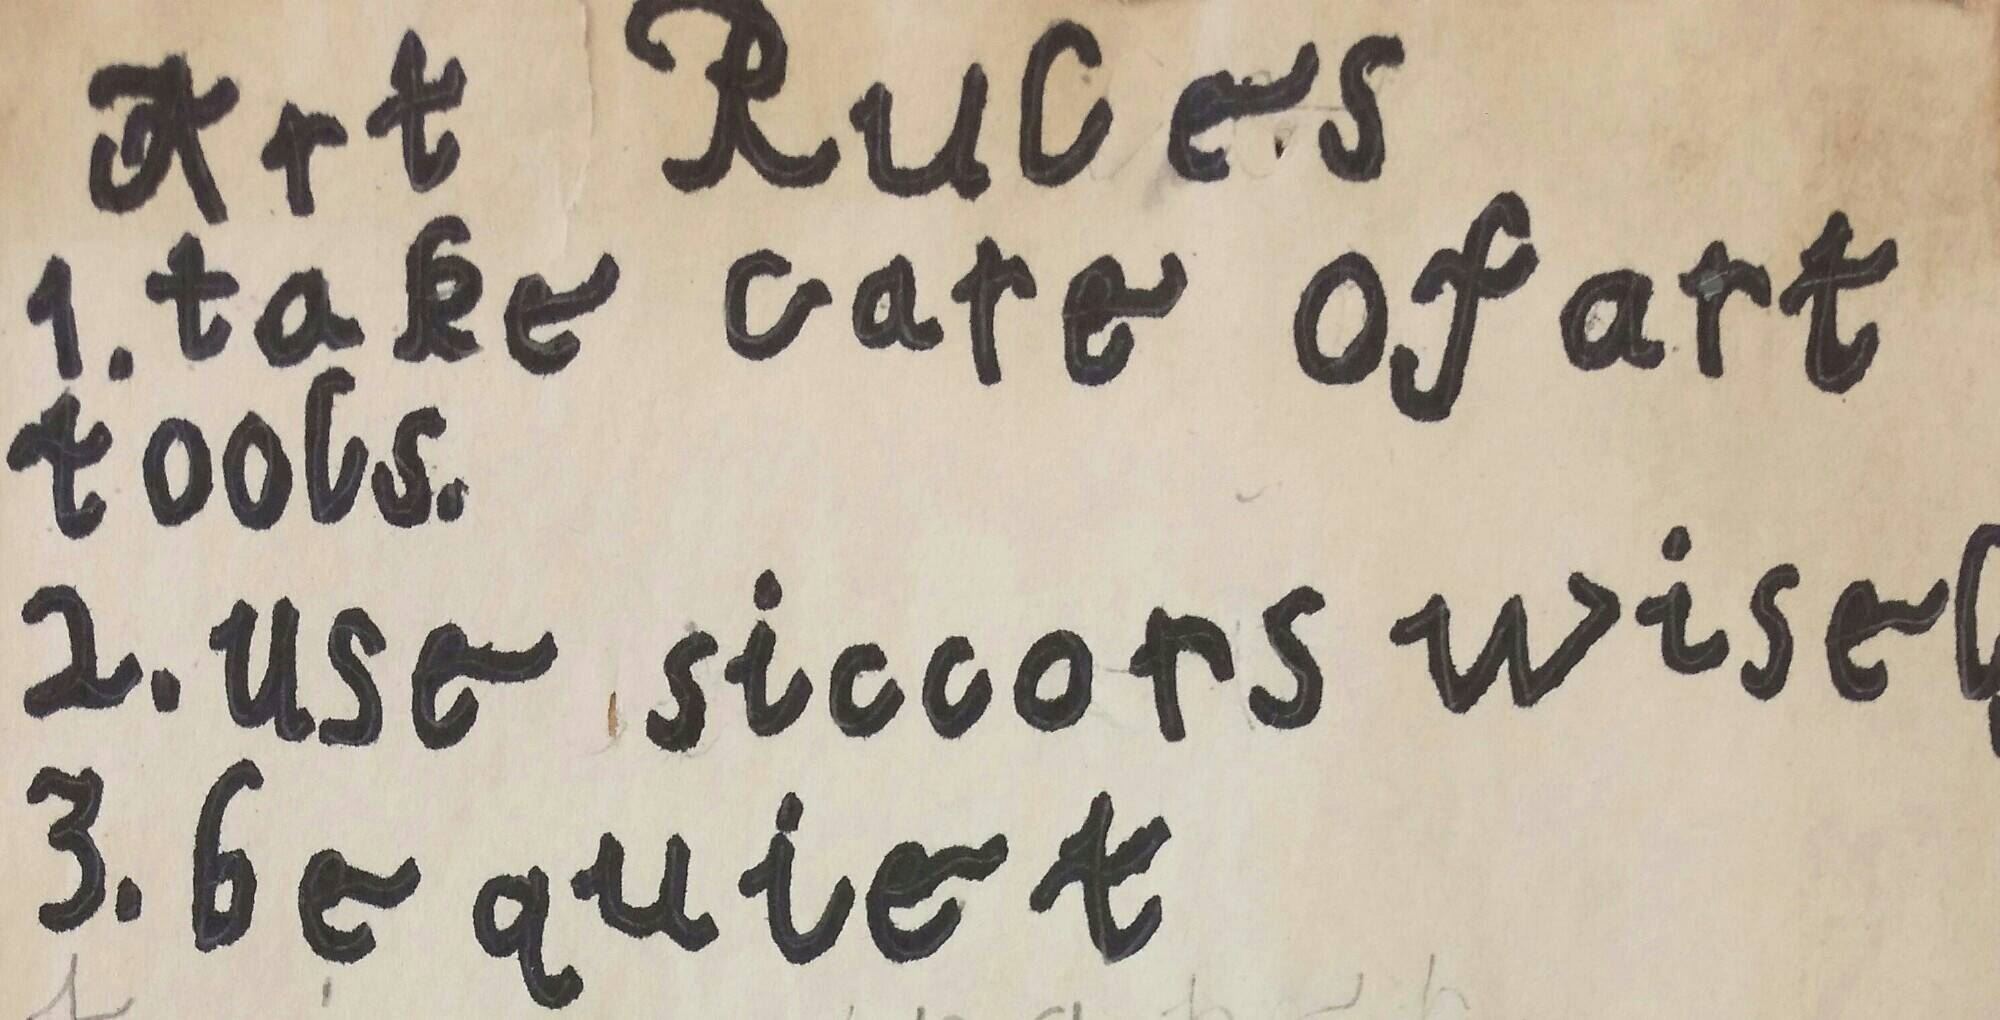 Art Rules
1. take care of art
tools.
2. use siccors wisely
3. be quiet